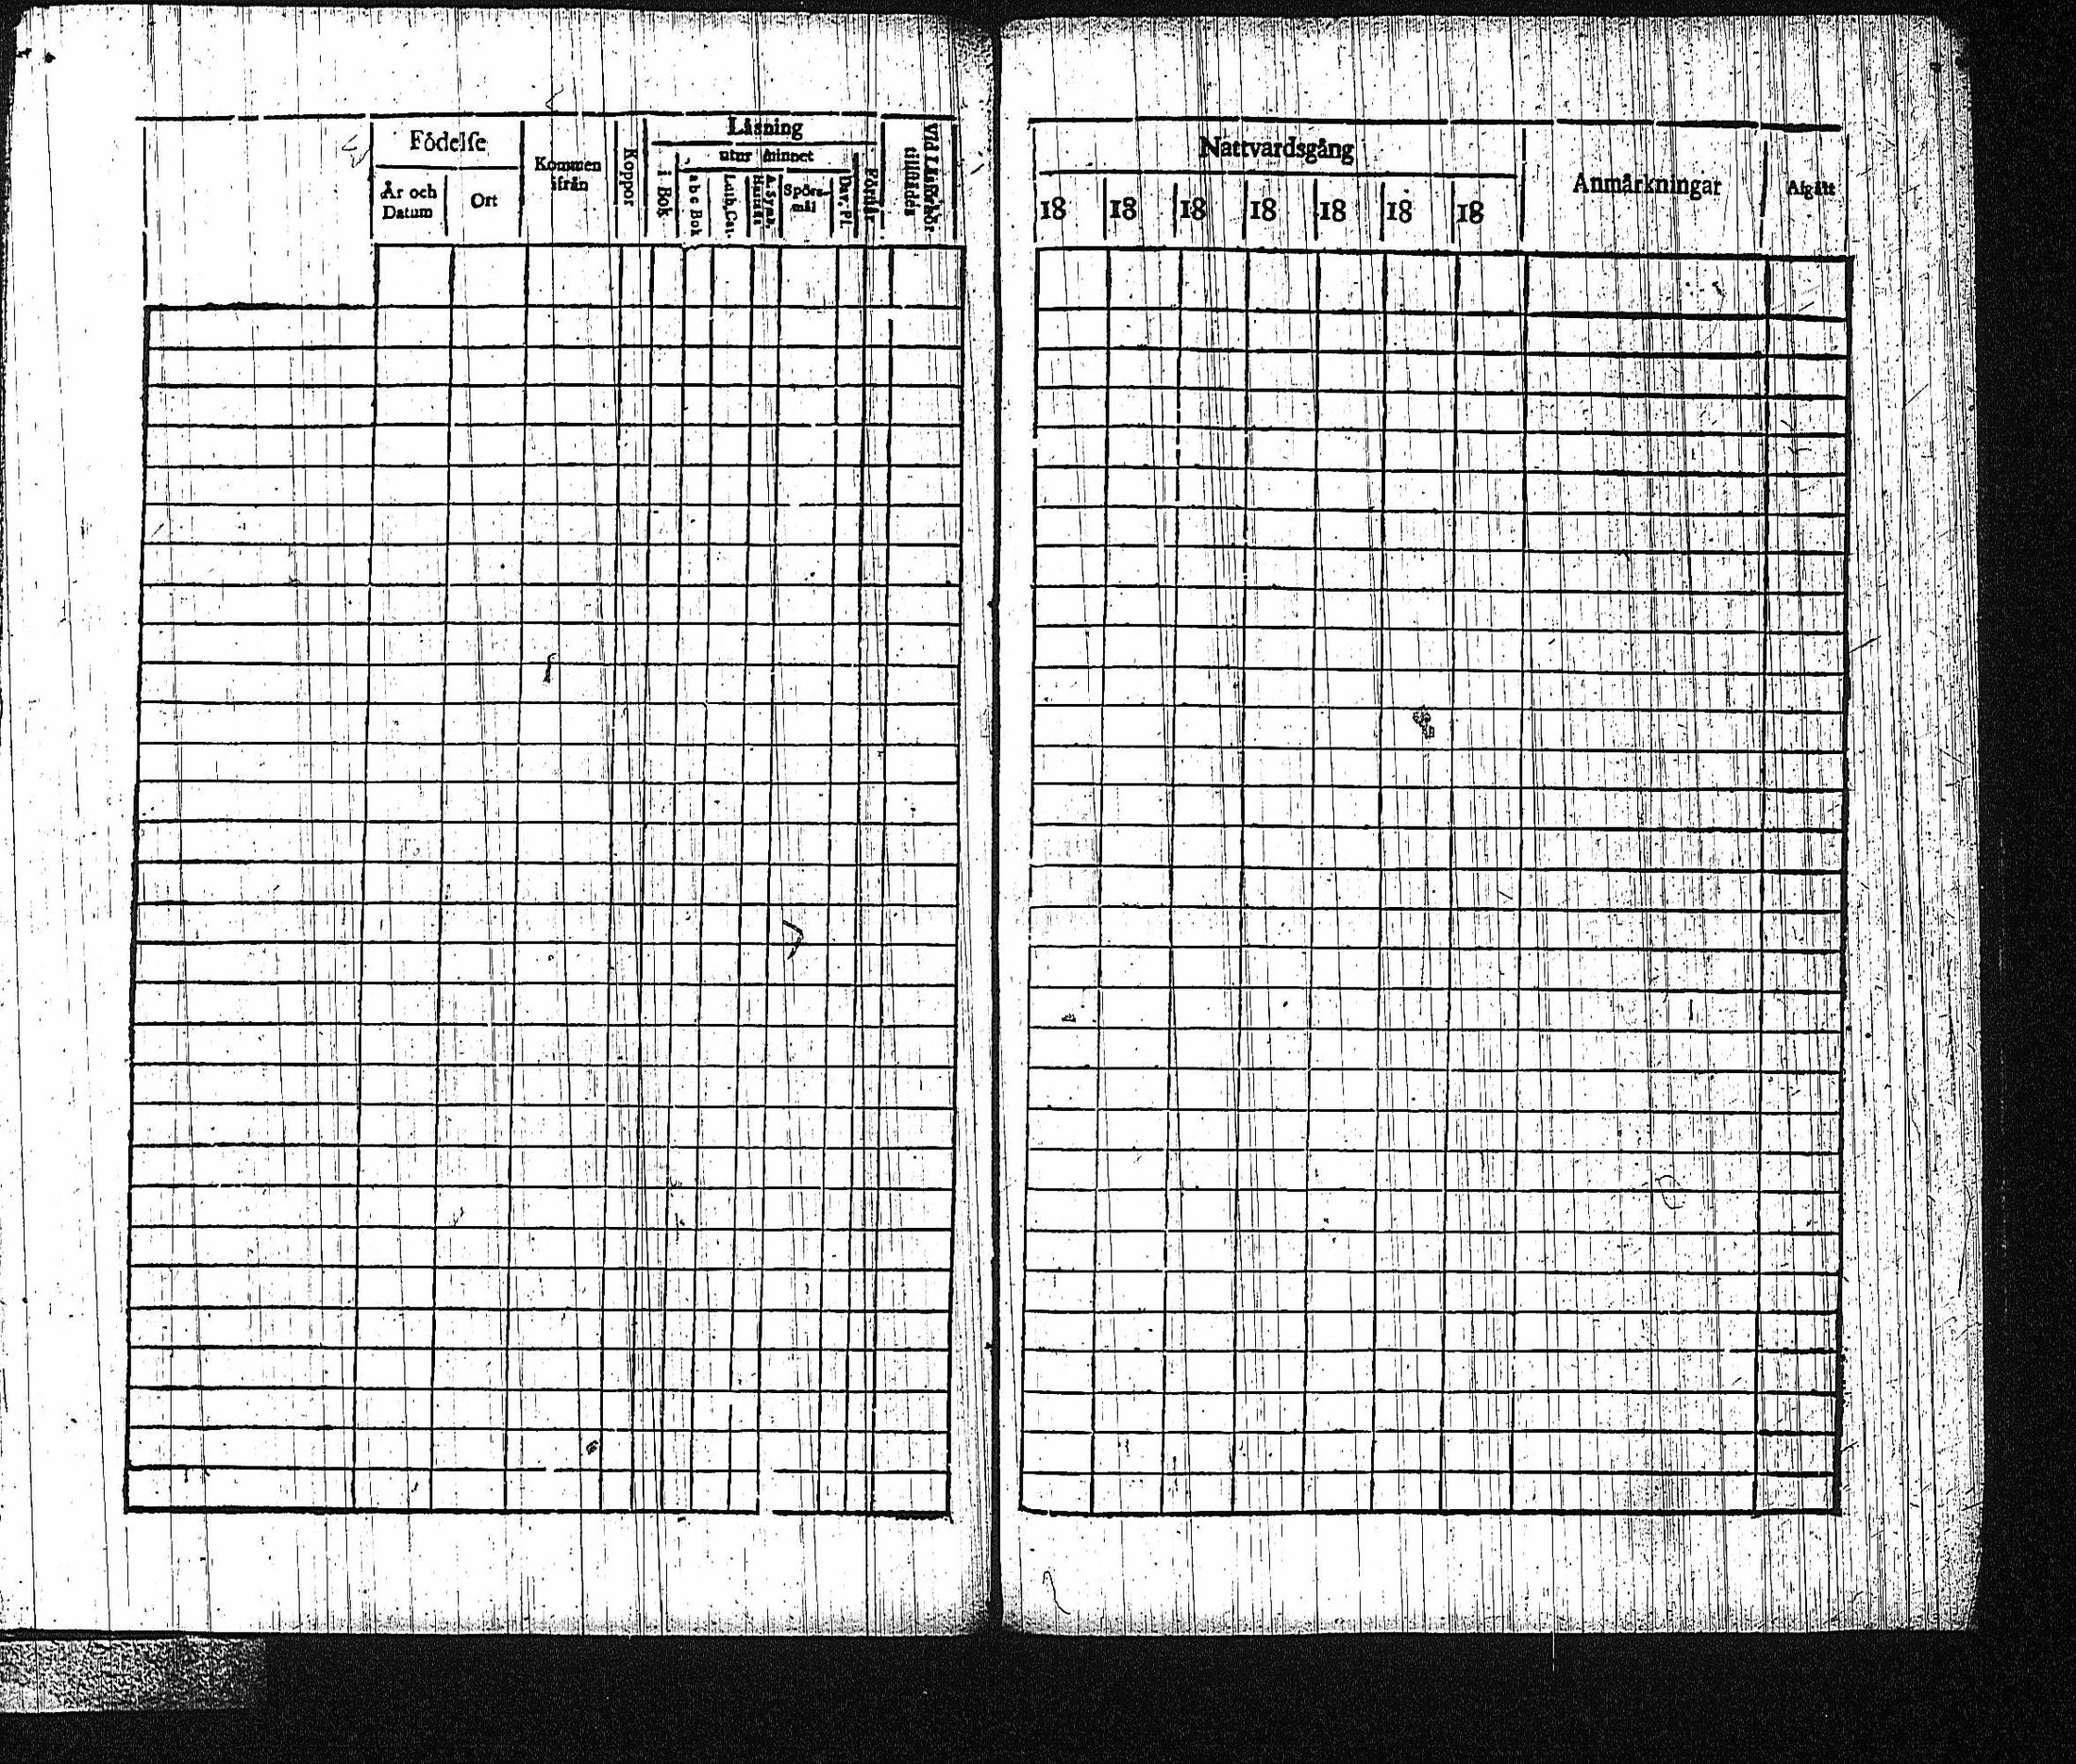 Födelse
År och Datum
Ort
Kommen ifrån
Koppor
Läsning
i Bok
utur minnet
a b c Bok
Luth. Cat.
A. Symb.
Spörsmål
Dav. Ps.
Förstår
Vid Läsförhör tillstädes
Nattvardsgång
18 18 18 18 18 18 18
Anmärkningar
Afgått